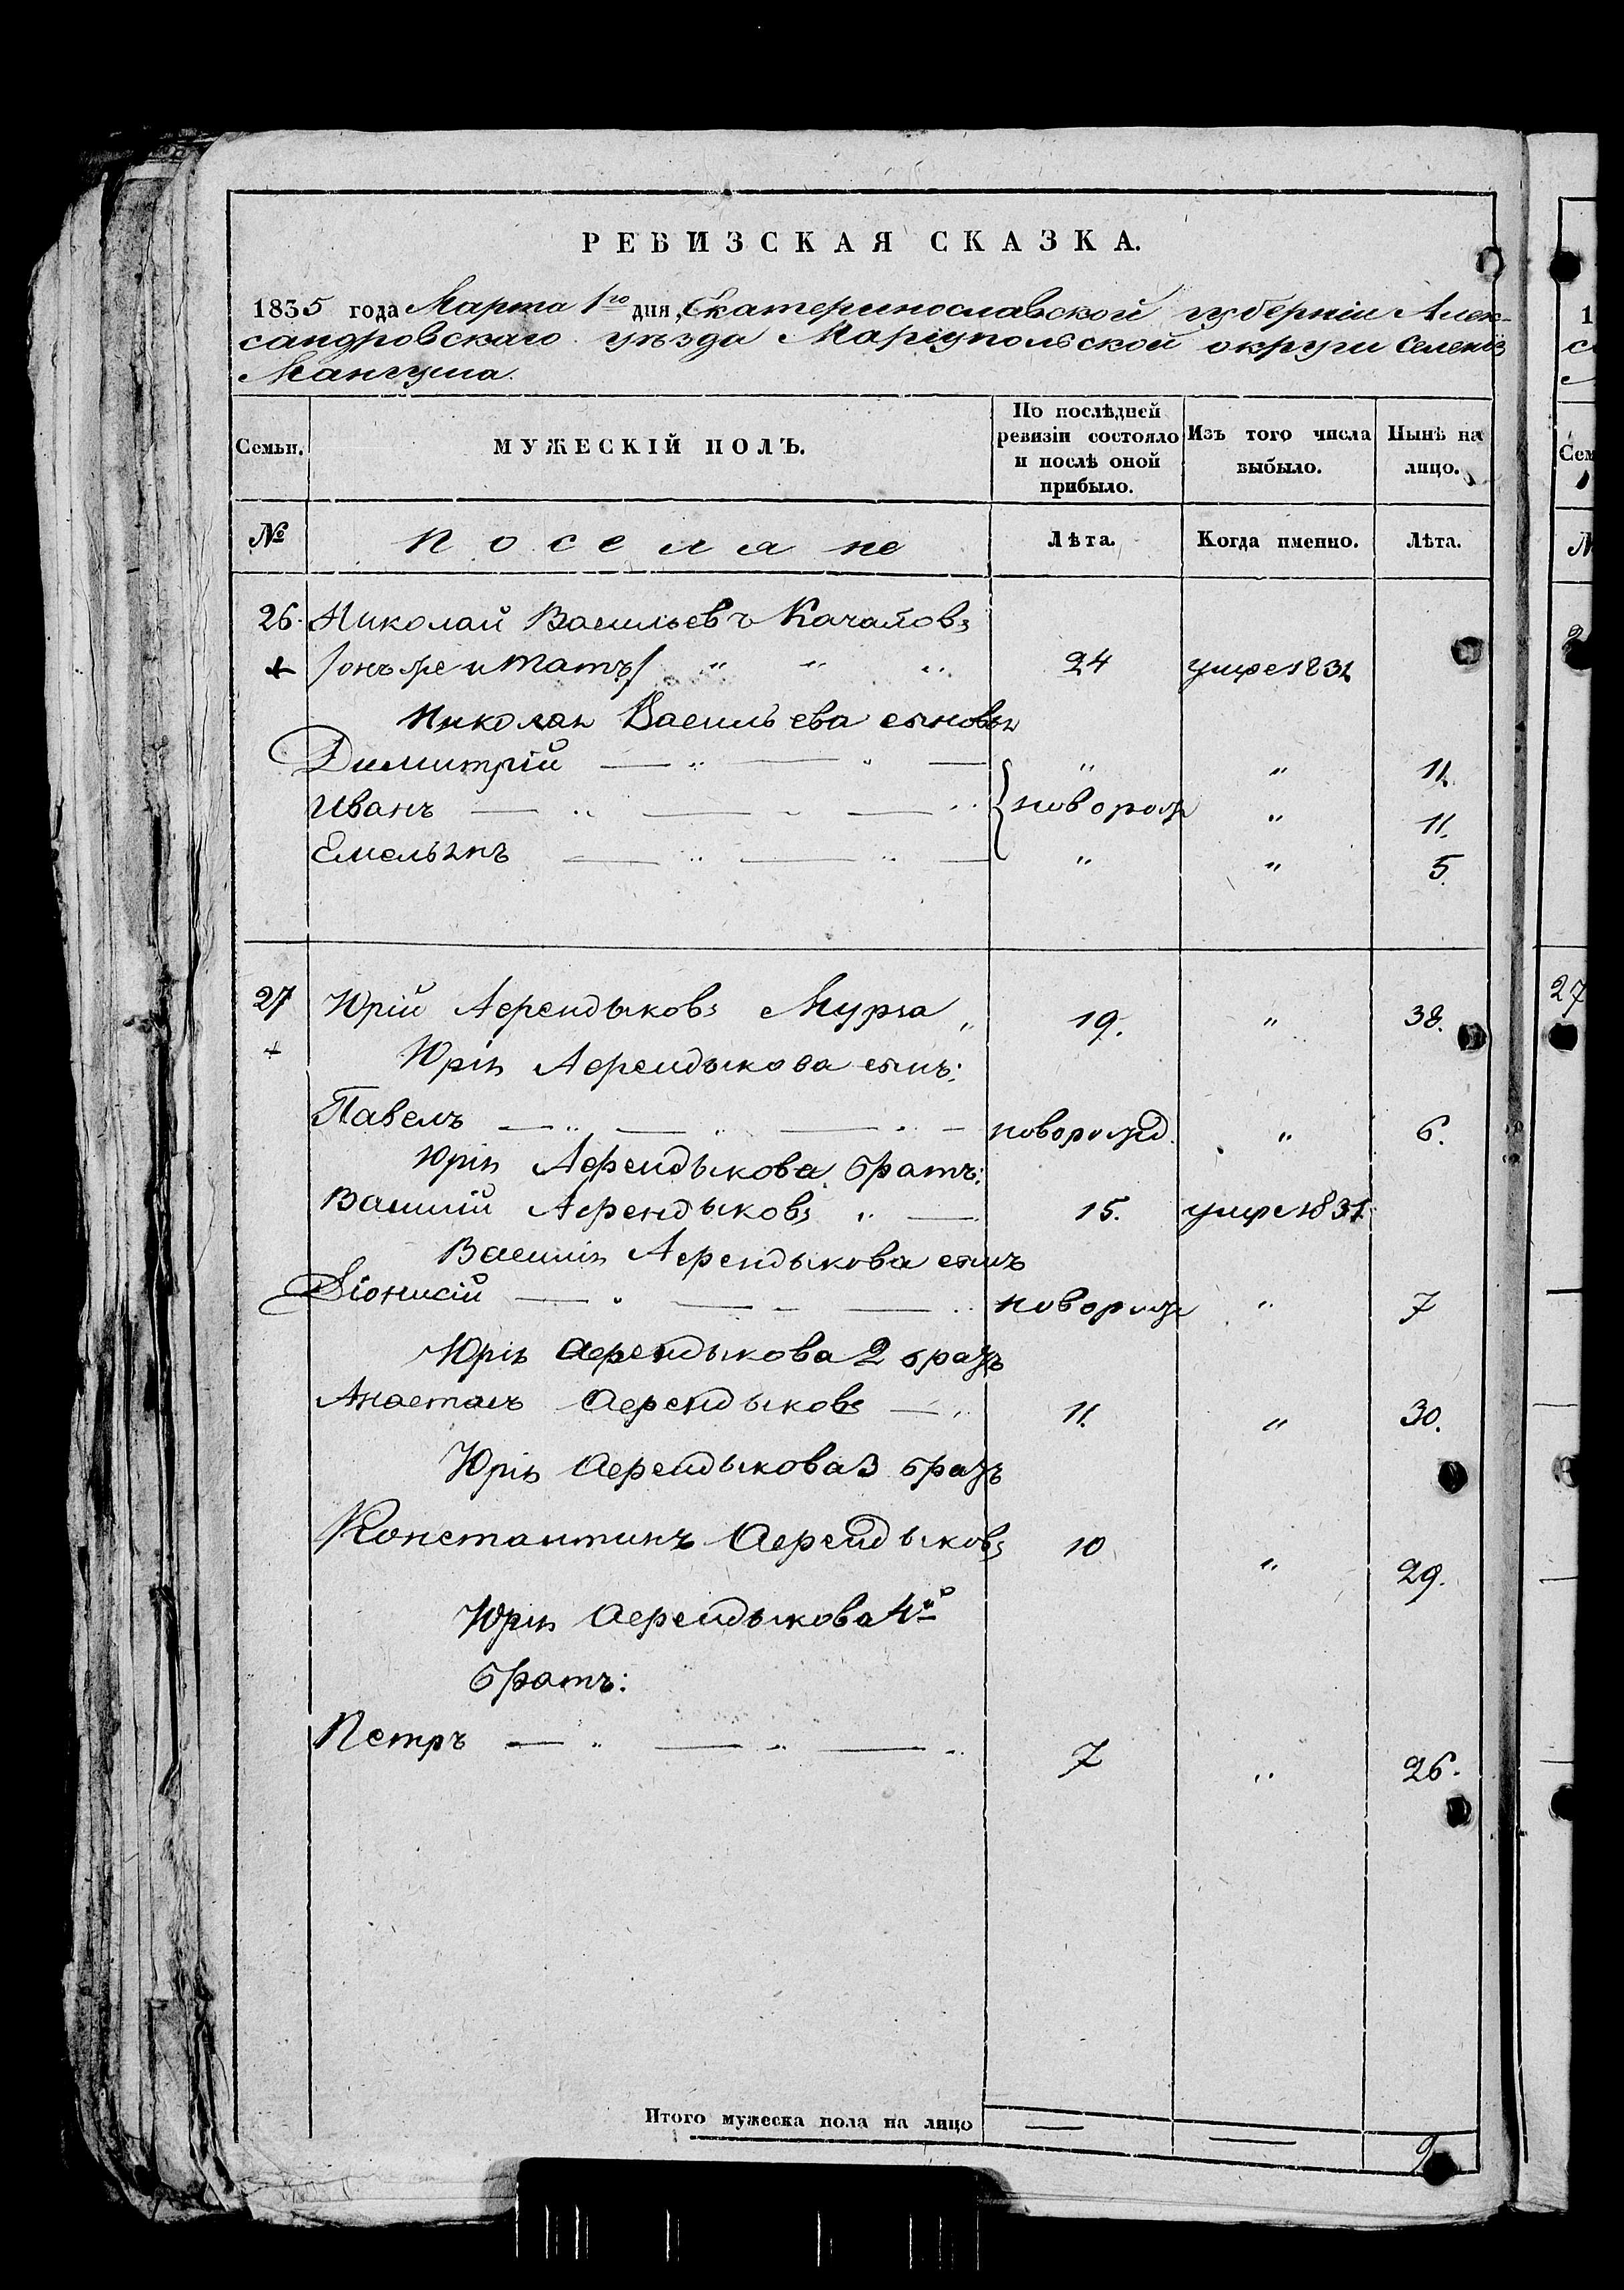 РЕВИЗСКАЯ СКАЗКА.
1835 года Марта 1го дня, Екатеринославской губерніи Алек-
сандровскаго уѣзда Маріупольской округи Селенія
Мангуша.
Семьи. МУЖЕСКІЙ ПОЛЪ. По послѣдней ревизіи состояло и послѣ оной прибыло. Изъ того числа выбыло. Нынѣ на лицо.
№ Поселяне Лѣта. Когда именно. Лѣта.
26. Николай Васильевъ
+ /онъ же и Татъ/ " " " 24 умре 1831
Николая Васильева сыновья
Димитрій — " — " — " " 11.
Иванъ — " — " — " новорож " 11.
Емельянъ — " — " — " " 5.
27 Юрій Аерендыковъ Мурза " 19. " 38.
+ Юрія Аерендыкова сынъ:
Павелъ — " — " — " — новорожд. " 6.
Юрія Аерендыкова братъ:
Василій Аерендыковъ " — 15. умре 1831.
Василія Аерендыкова сынъ
Діонисій — " — " — " новорож " 7
Юрія Аерендыкова 2 братъ
Анастасъ Аерендыковъ — " 11. " 30.
Юрія Аерендыкова 3 братъ
Константинъ Аерендыковъ 10 " 29.
Юрія Аерендыкова 4й
братъ:
Петръ — " — " — " 7 " 26.
Итого мужеска пола на лицо — — 9